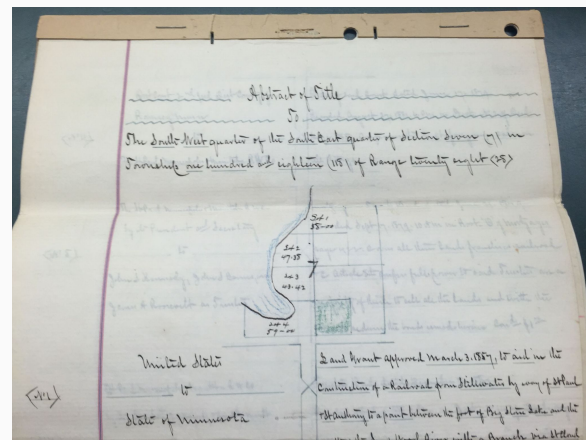 Abstract of Title
To
The South West quarter of the South East quarter of Section Seven (7) in
Township one hundred and eighteen (118) of Range twenty eight (28)
Lot 1
58-00
Lot 2
47.35
7
Lot 3
43.42
Lot 4
59-00
United States
to
State of Minnesota
Land Grant approved March 3. 1857, to aid in the
Construction of a Railroad from Stillwater by way of St Paul
to a point between the foot of Big Stone Lake and the
Branch via St